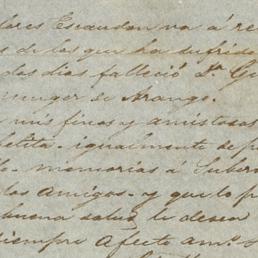 lares Escandon va á re
s de las que ha sufrido
dos dias falleció Dn. Gu
muger de Arango.
mis finos y amistosos
etita. igualmente de p
lo. memorias á Suber
los amigos. y que lo p
buena salud le desea
siempre afecto amo. s